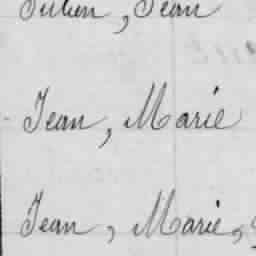 Julien, Jean
Jean, Marie
Jean, Marie,